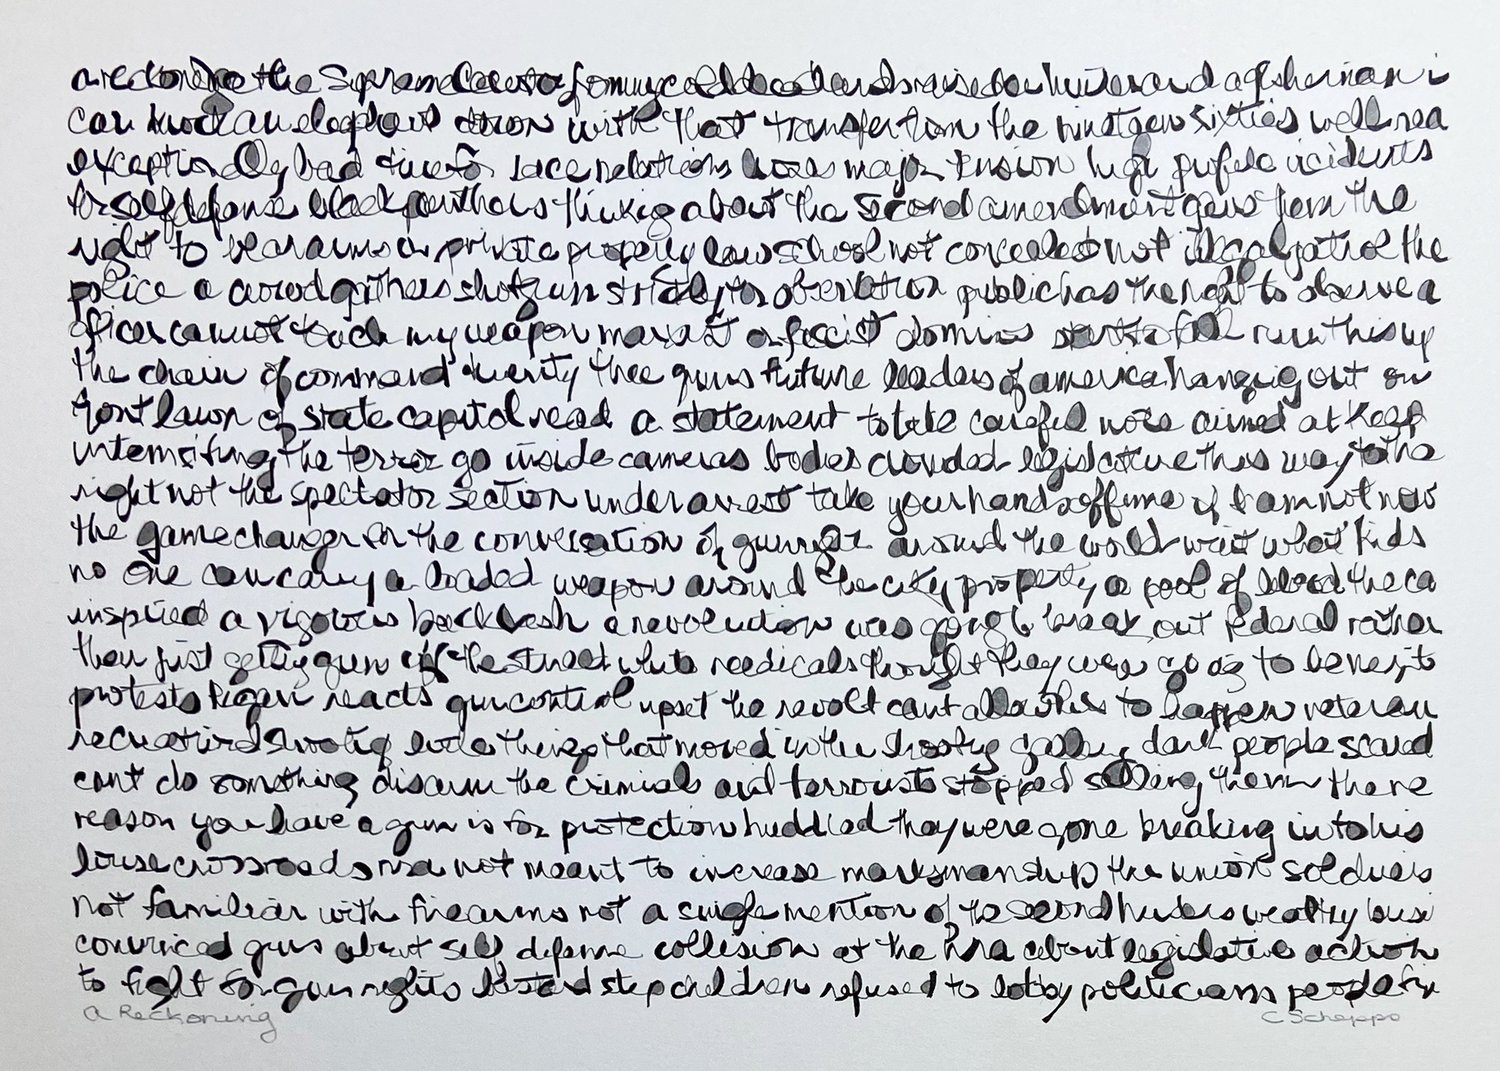 a reckoning the Supreme Court from my cold dead hands raised on hunter and a fisherman i
can knock an elephant down with that transfer from the nineteen sixties well rea
exceptionally bad time for race relations was major tension high profile incidents
for self defense black panthers thinking about the second amendment gives them the
right to bear arms on private property law school not concealed not illegal patrol the
police a crowd gathers shotgun strictly for observation public has the right to observe a
officer cannot touch my weapon marxist or fascist dominos start to fall run this up
the chain of command twenty three guns future leaders of america hanging out on
front lawn of state capitol read a statement to take careful note aimed at keep
intensifying the terror go inside cameras bodies crowded legislature this way to the
right not the spectator section under arrest take your hands off me if I am not now
the game changer for the conversation of guns around the world wait what kids
no one can carry a loaded weapon around the city property a pool of blood the ca
inspired a vigorous backlash a revolution was going to break out federal rather
than just getting guns off the street white radicals thought they were going to benefit
protests regan reacts gun control upset the revolt cant allow this to happen veteran
recreational shooting little things that moved in the shooting gallery dark people scared
cant do something disarm the criminals and terrorists stopped selling them there
reason you have a gun is for protection huddled they were gone breaking into his
house crossroads nra not meant to increase marksmanship the union soldiers
not familiar with firearms not a single mention of the second hunters wealthy busi
convinced guns about self defense collision at the nra about legislative action
to fight for gun rights bastard step children refused to lobby politicians people fix
A Reckoning
C Scheppo